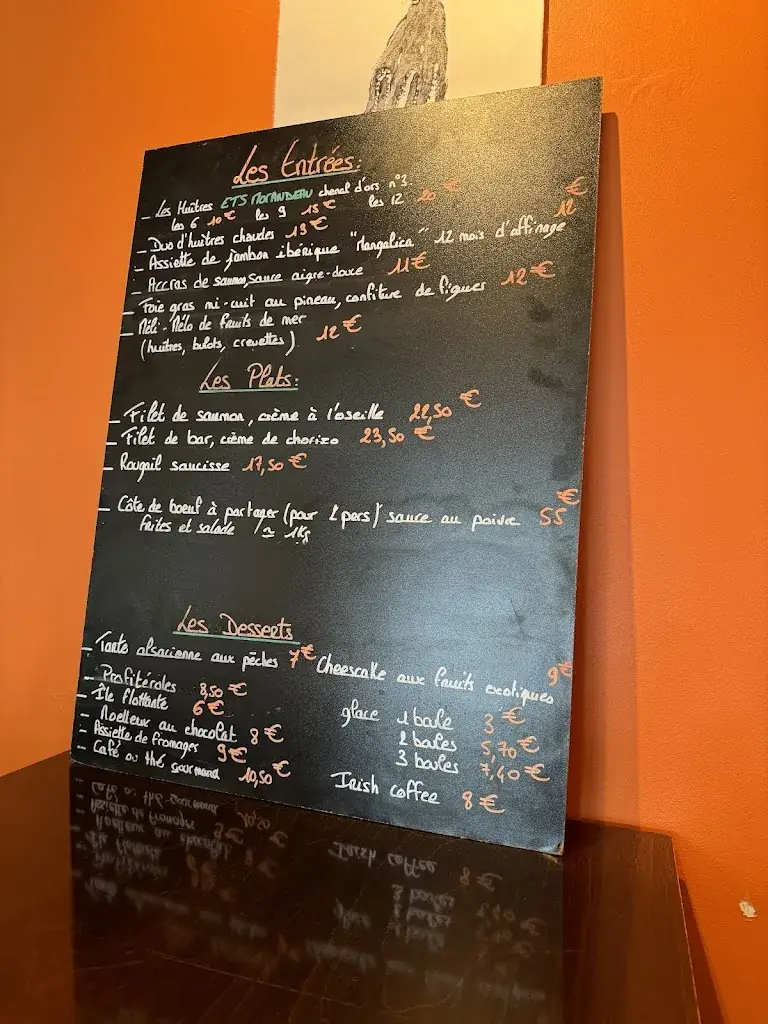 Les Entrées:
– Les Huîtres ETS MORANDEAU chenal d'ors n°3.
les 6 10€ les 9 15€ les 12 20€
– Duo d'huîtres chaudes 13€
– Assiette de jambon ibérique "Mangalica" 12 mois d'affinage 12€
– Accras de saumon, sauce aigre-douce 11€
– Foie gras mi-cuit au pineau, confiture de figues 12€
– Méli-Mélo de fruits de mer
(huîtres, bulots, crevettes) 12€
Les Plats:
– Filet de saumon, crème à l'oseille 22,50€
– Filet de bar, crème de chorizo 23,50€
– Rougail saucisse 17,50€
– Côte de boeuf à partager (pour 2 pers) sauce au poivre 55€
frites et salade / ≃ 1Kg
Les Desserts
– Tarte alsacienne aux pêches 7€
– Profitéroles 8,50€
– Île flottante 6€
– Moelleux au chocolat 8€
– Assiette de fromages 9€
– Café ou thé gourmand 10,50€
Cheescake aux fruits exotiques 9€
glace 1 boule 3€
2 boules 5,70€
3 boules 7,40€
Irish coffee 8€